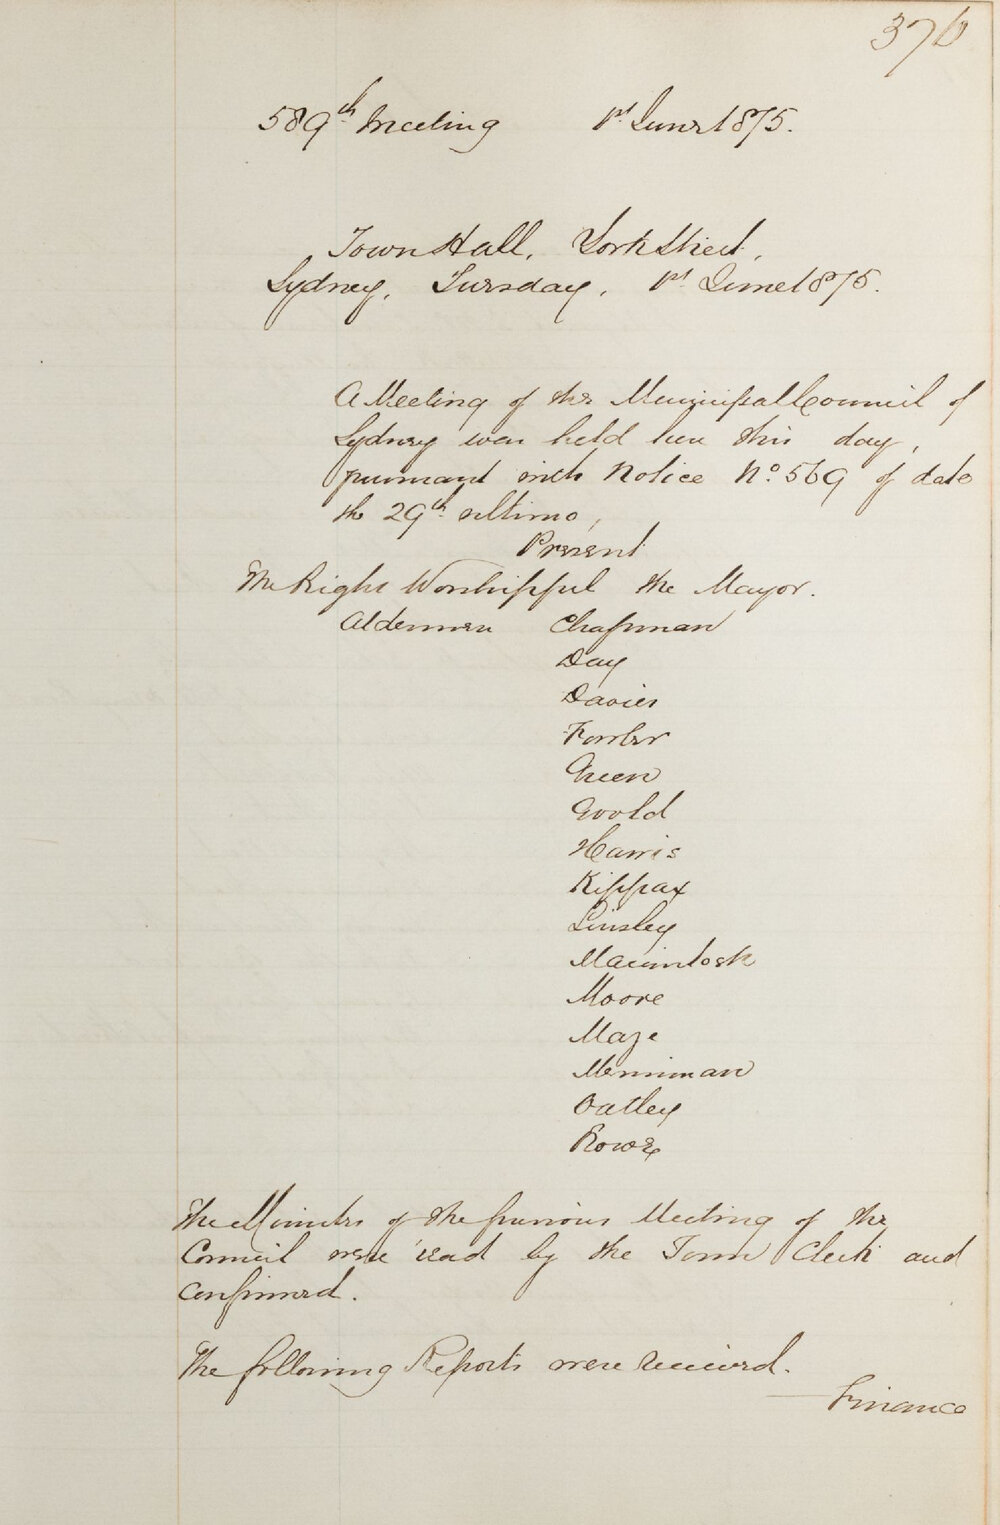 376
589th Meeting 1st June 1875.
Town Hall, York Street,
Sydney, Tuesday, 1st June 1875.
A Meeting of the Municipal Council of
Sydney was held here this day,
pursuant with Notice No. 569 of date
the 29th ultimo,
Present
The Right Worshipful the Mayor.
Aldermen Chapman
Day
Davies
Fowler
Green
Goold
Harris
Kippax
Linsley
Macintosh
Moore
Maze
Merriman
Oatley
Rowe
The Minutes of the previous Meeting of the
Council were read by the Town Clerk and
Confirmed.
The following Reports were received.
Finance